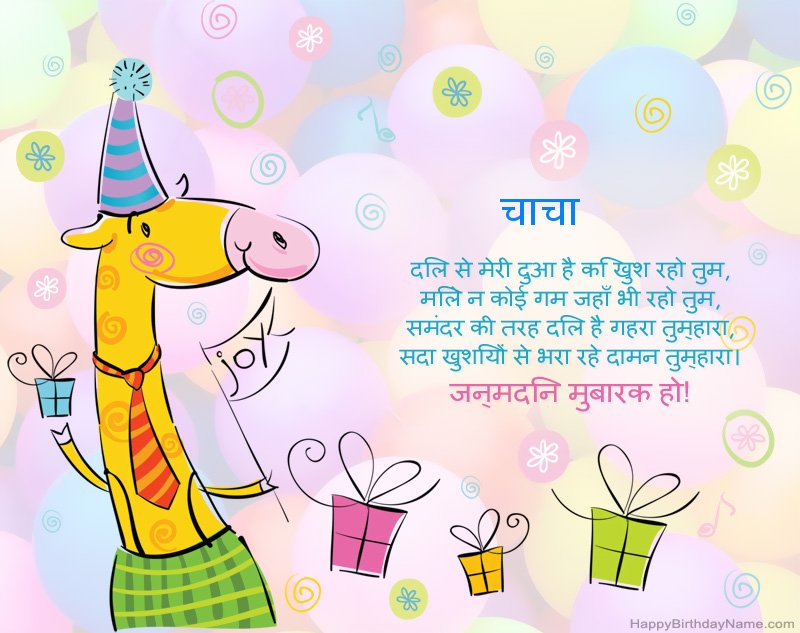 चाचा
दिल से मेरी दुआ है कि खुश रहो तुम,
मिले न कोई गम जहाँ भी रहो तुम,
समंदर की तरह दिल है गहरा तुम्हारा,
सदा खुशियों से भरा रहे दामन तुम्हारा।
जन्मदिन मुबारक हो!
joy
HappyBirthdayName.com